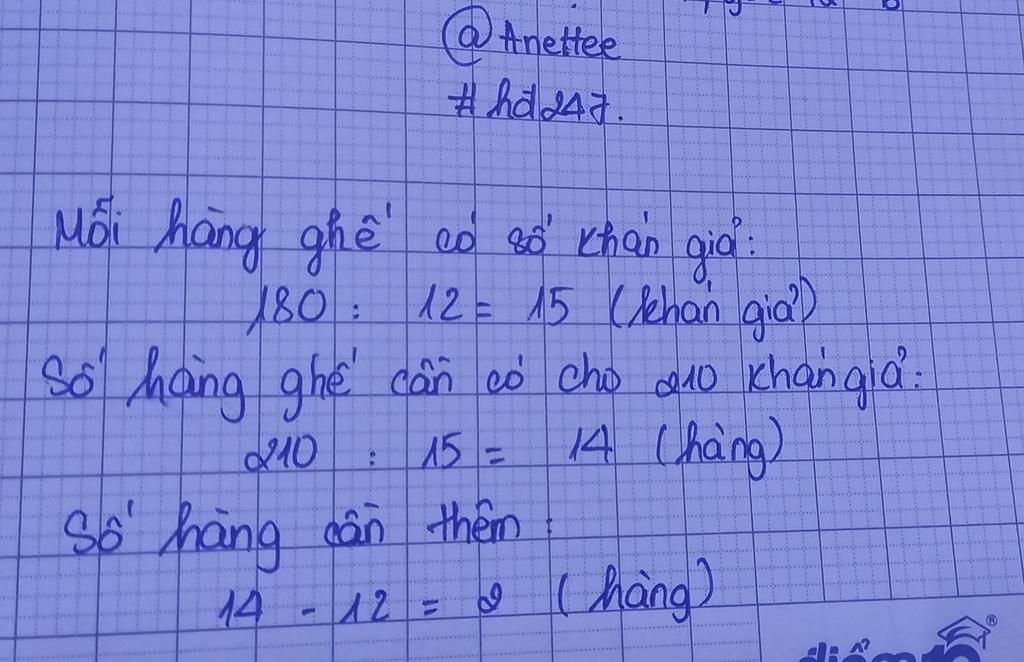 @Anettee
#hd247.
Mỗi hàng ghế có số khán giả:
180 : 12 = 15 (khán giả)
Số hàng ghế cần có cho 210 khán giả:
210 : 15 = 14 (hàng)
Số hàng cần thêm:
14 - 12 = 2 (hàng)
điểm 10